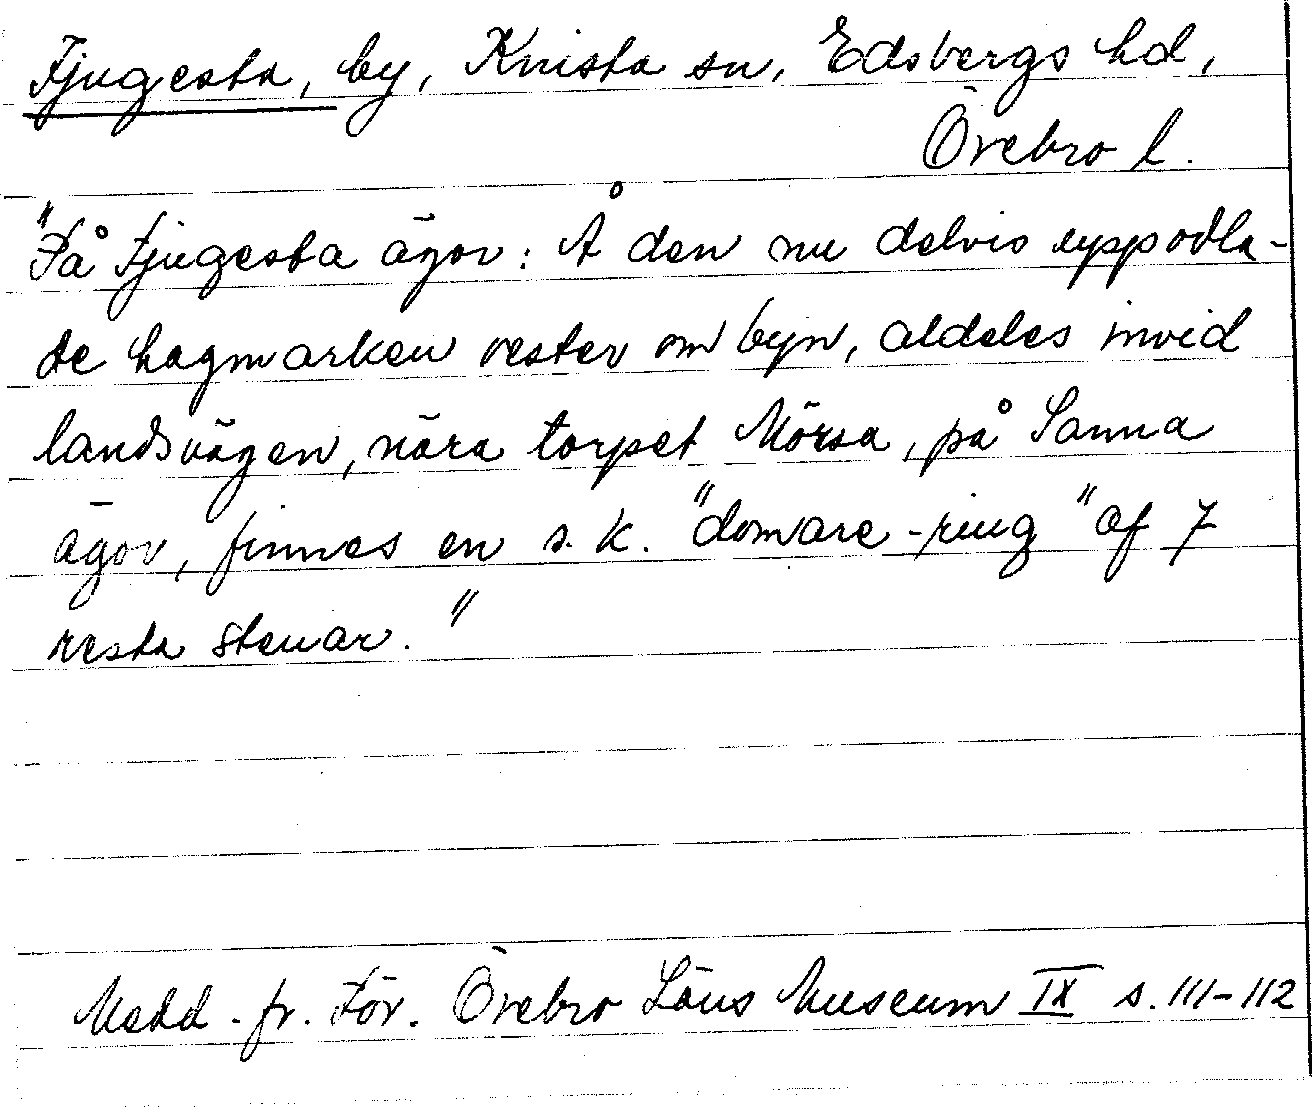 Fjugesta, by, Knista sn, Edsbergs hd,
Örebro l.
"På Fjugesta ägor: Å den nu delvis uppodla-
de hagmarken vester om byn, aldeles invid
landsvägen, nära torpet Mörsa, på Sanna
ägor, finnes en s.k. "domare-ring" af 7
resta stenar."
Medd. fr. För. Örebro Läns Museum IX s. 111-112